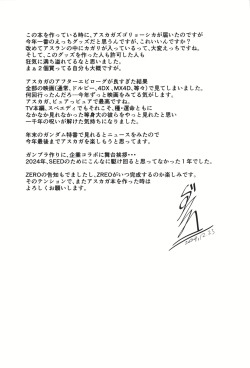 この本を作っている時に、アスカガズゴリョーシカが届いたのですが
今年一番のえっちグッズだと思うんですが、これいいんですか？
改めてアスランの中にカガリが入っているって、大変えっちですね。
そして、このグッズを作った人も許可した人も
狂気に満ち溢れてるなと思いました。
まぁ２個買ってる自分も大概ですが。
アスカガのアフターエピローグが良すぎた結果
全部の映画(通常、ドルビー、4DX、MX4D、等々)で見てしまいました。
何回行ったんだろ…今年ずっと映画をみてる気がします。
アスカガ、ピュアッピュアで最高ですね。
TV本編、スペエディでもそれこそ、種・運命ともに
なかなか見れなかった等身大の彼らをやっと見れたと思い
一千年の呪いが解けた気持ちになりました。
年末のガンダム特番で見れるとニュースをみたので
今年最後までアスカガを楽しもうと思ってます。
ガンプラ作りに、企業コラボに舞台挨拶・・・
2024年、SEEDのためにこんなに駆け回ると思ってなかった１年でした。
ZEROの告知もでましたし、ZREOがいつ完成するのか楽しみです。
そのテンションで、またアスカガ本を作った時は
よろしくお願いします。
2024.12.23